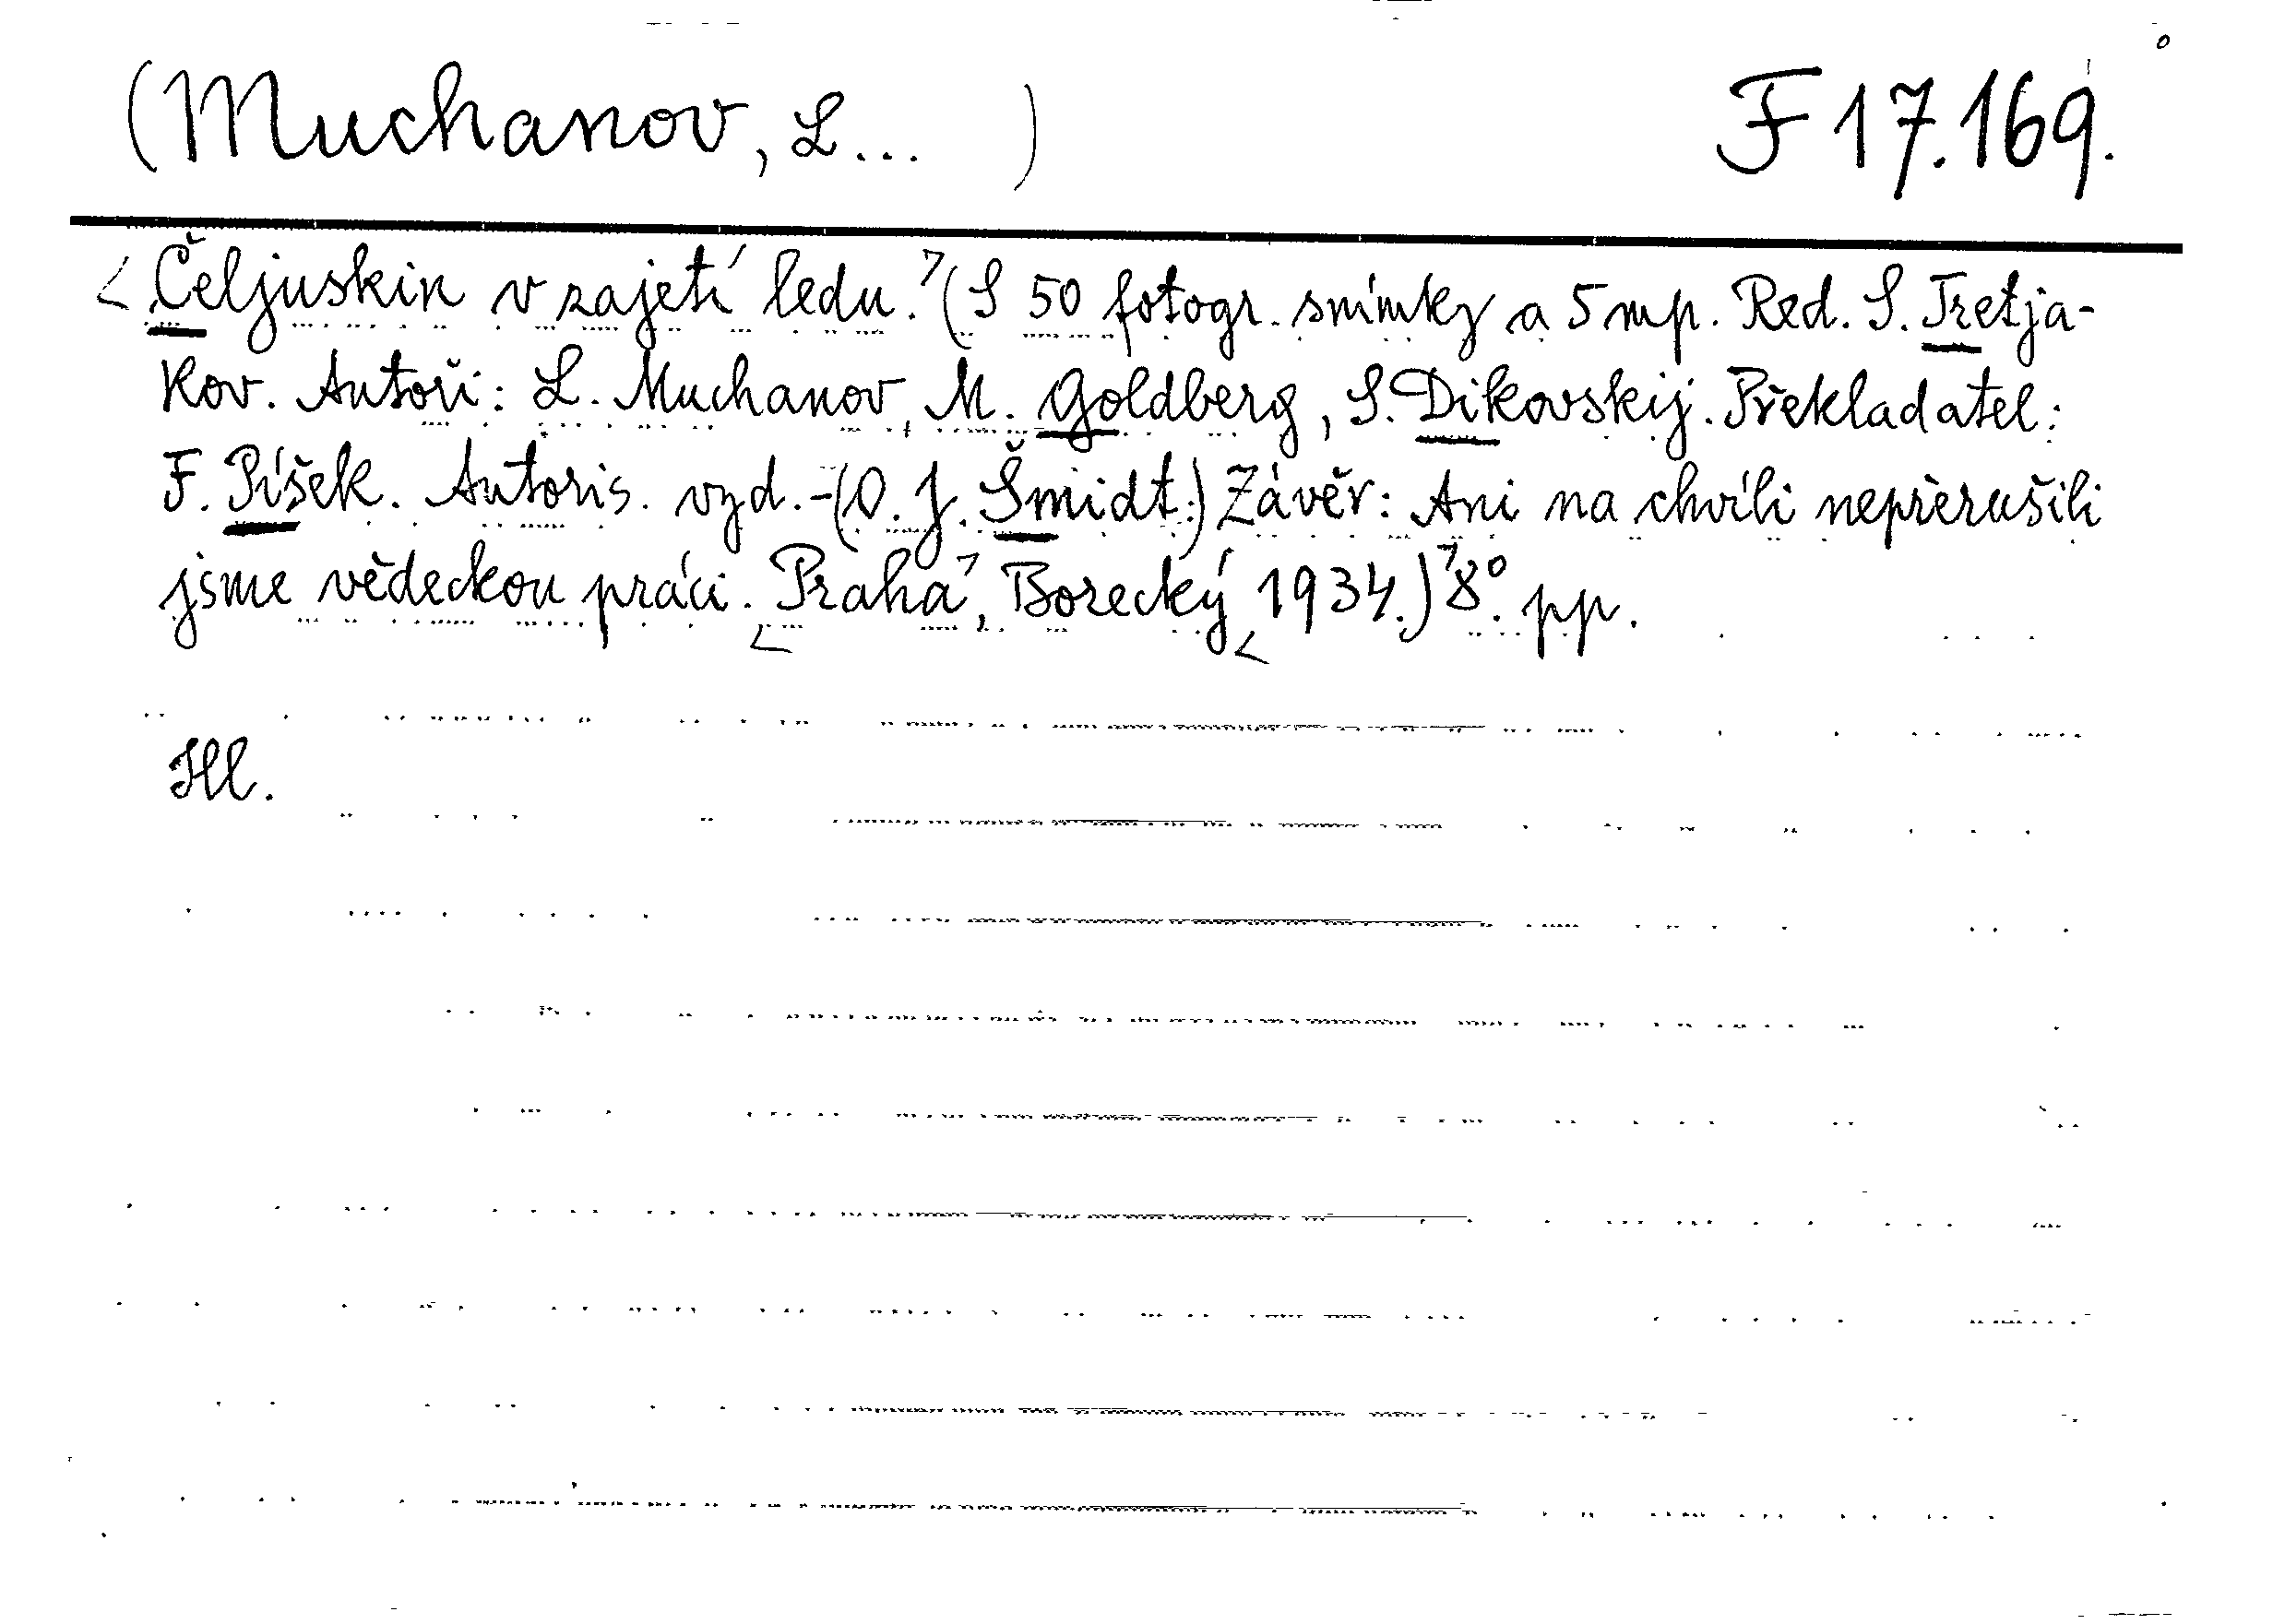 (Muchanov, L... )
F 17.169.
Čeljuskin v zajetí ledu. (S 50 fotogr. snímky a 5 mp. Red. S. Tretja-
kov. Autoři: L. Muchanov, M. Goldberg, S. Dikovskij. Překladatel:
F. Píšek. Autoris. vyd. - (O. J. Šmidt:) Závěr: Ani na chvíli nepřerušili
jsme vědeckou práci. Praha, Borecký 1934.) 8°. pp.
Hl.